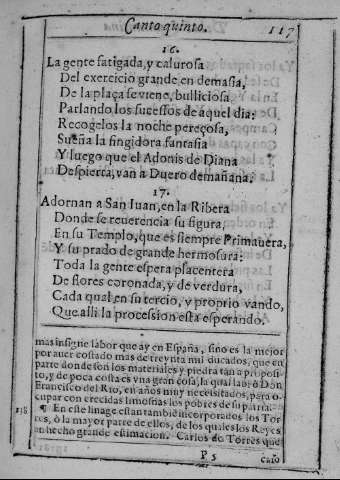 Canto quinto. 117
16.
La gente fatigada, y calurosa
Del exercicio grande en demasia,
De la plaça se viene, bulliciosa
Parlando los sucessos de aquel dia:
Recogelos la noche pereçosa,
Sueña la fingidora fantasia
Y luego que el Adonis de Diana
Despierta, van a Duero de mañana.
17.
Adornan a San Iuan, en la Ribera
Donde se reuerencia su figura,
En su Templo, que es siempre Primauera,
Y su prado de grande hermosura:
Toda la gente espera placentera
De flores coronada, y de verdura,
Cada qual en su tercio, y proprio vando,
Que alli la procession està esperando.
mas insigne labor que ay en España, sino es la mejor
por auer costado mas de treynta mil ducados, que en
parte donde son los materiales y piedra tan a proposi-
to, y de poca costa es vna gran cosa, la qual labrò Don
Francisco del Rio, en años muy necessitados, para o-
cupar con crecidas limosnas los pobres de su patria.
118 ¶ En este linage estan tambie incorporados los Tor
res, ò la mayor parte de ellos, de los quales los Reyes
an hecho grande estimacion. Carlos de Torres que
P 5